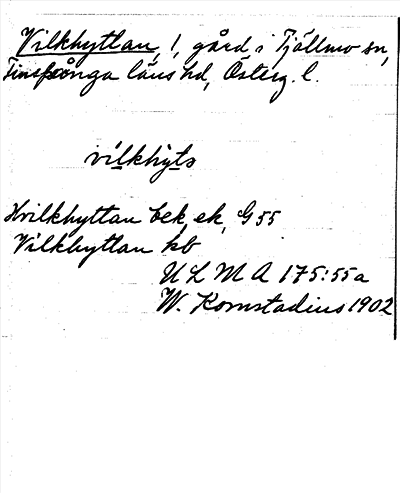 Vilkhyttan, 1, gård i Tjällmo sn,
Finspånga läns hd, Österg. l.
vilkhyts
Hvilkhyttan bek, ek, G 55
Vilkhyttan kb
U L M A 175:55a
W. Kornstadius 1902